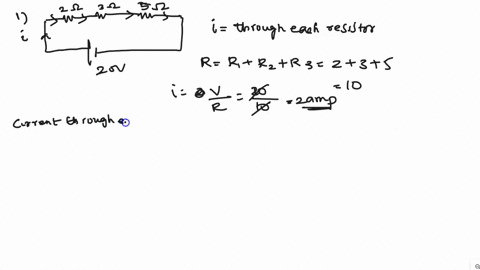 1) 2Ω 3Ω 5Ω
i
20V
i = through each resistor
R = R1 + R2 + R3 = 2 + 3 + 5
= 10
i = V/R = 20/10 = 2amp
current through e